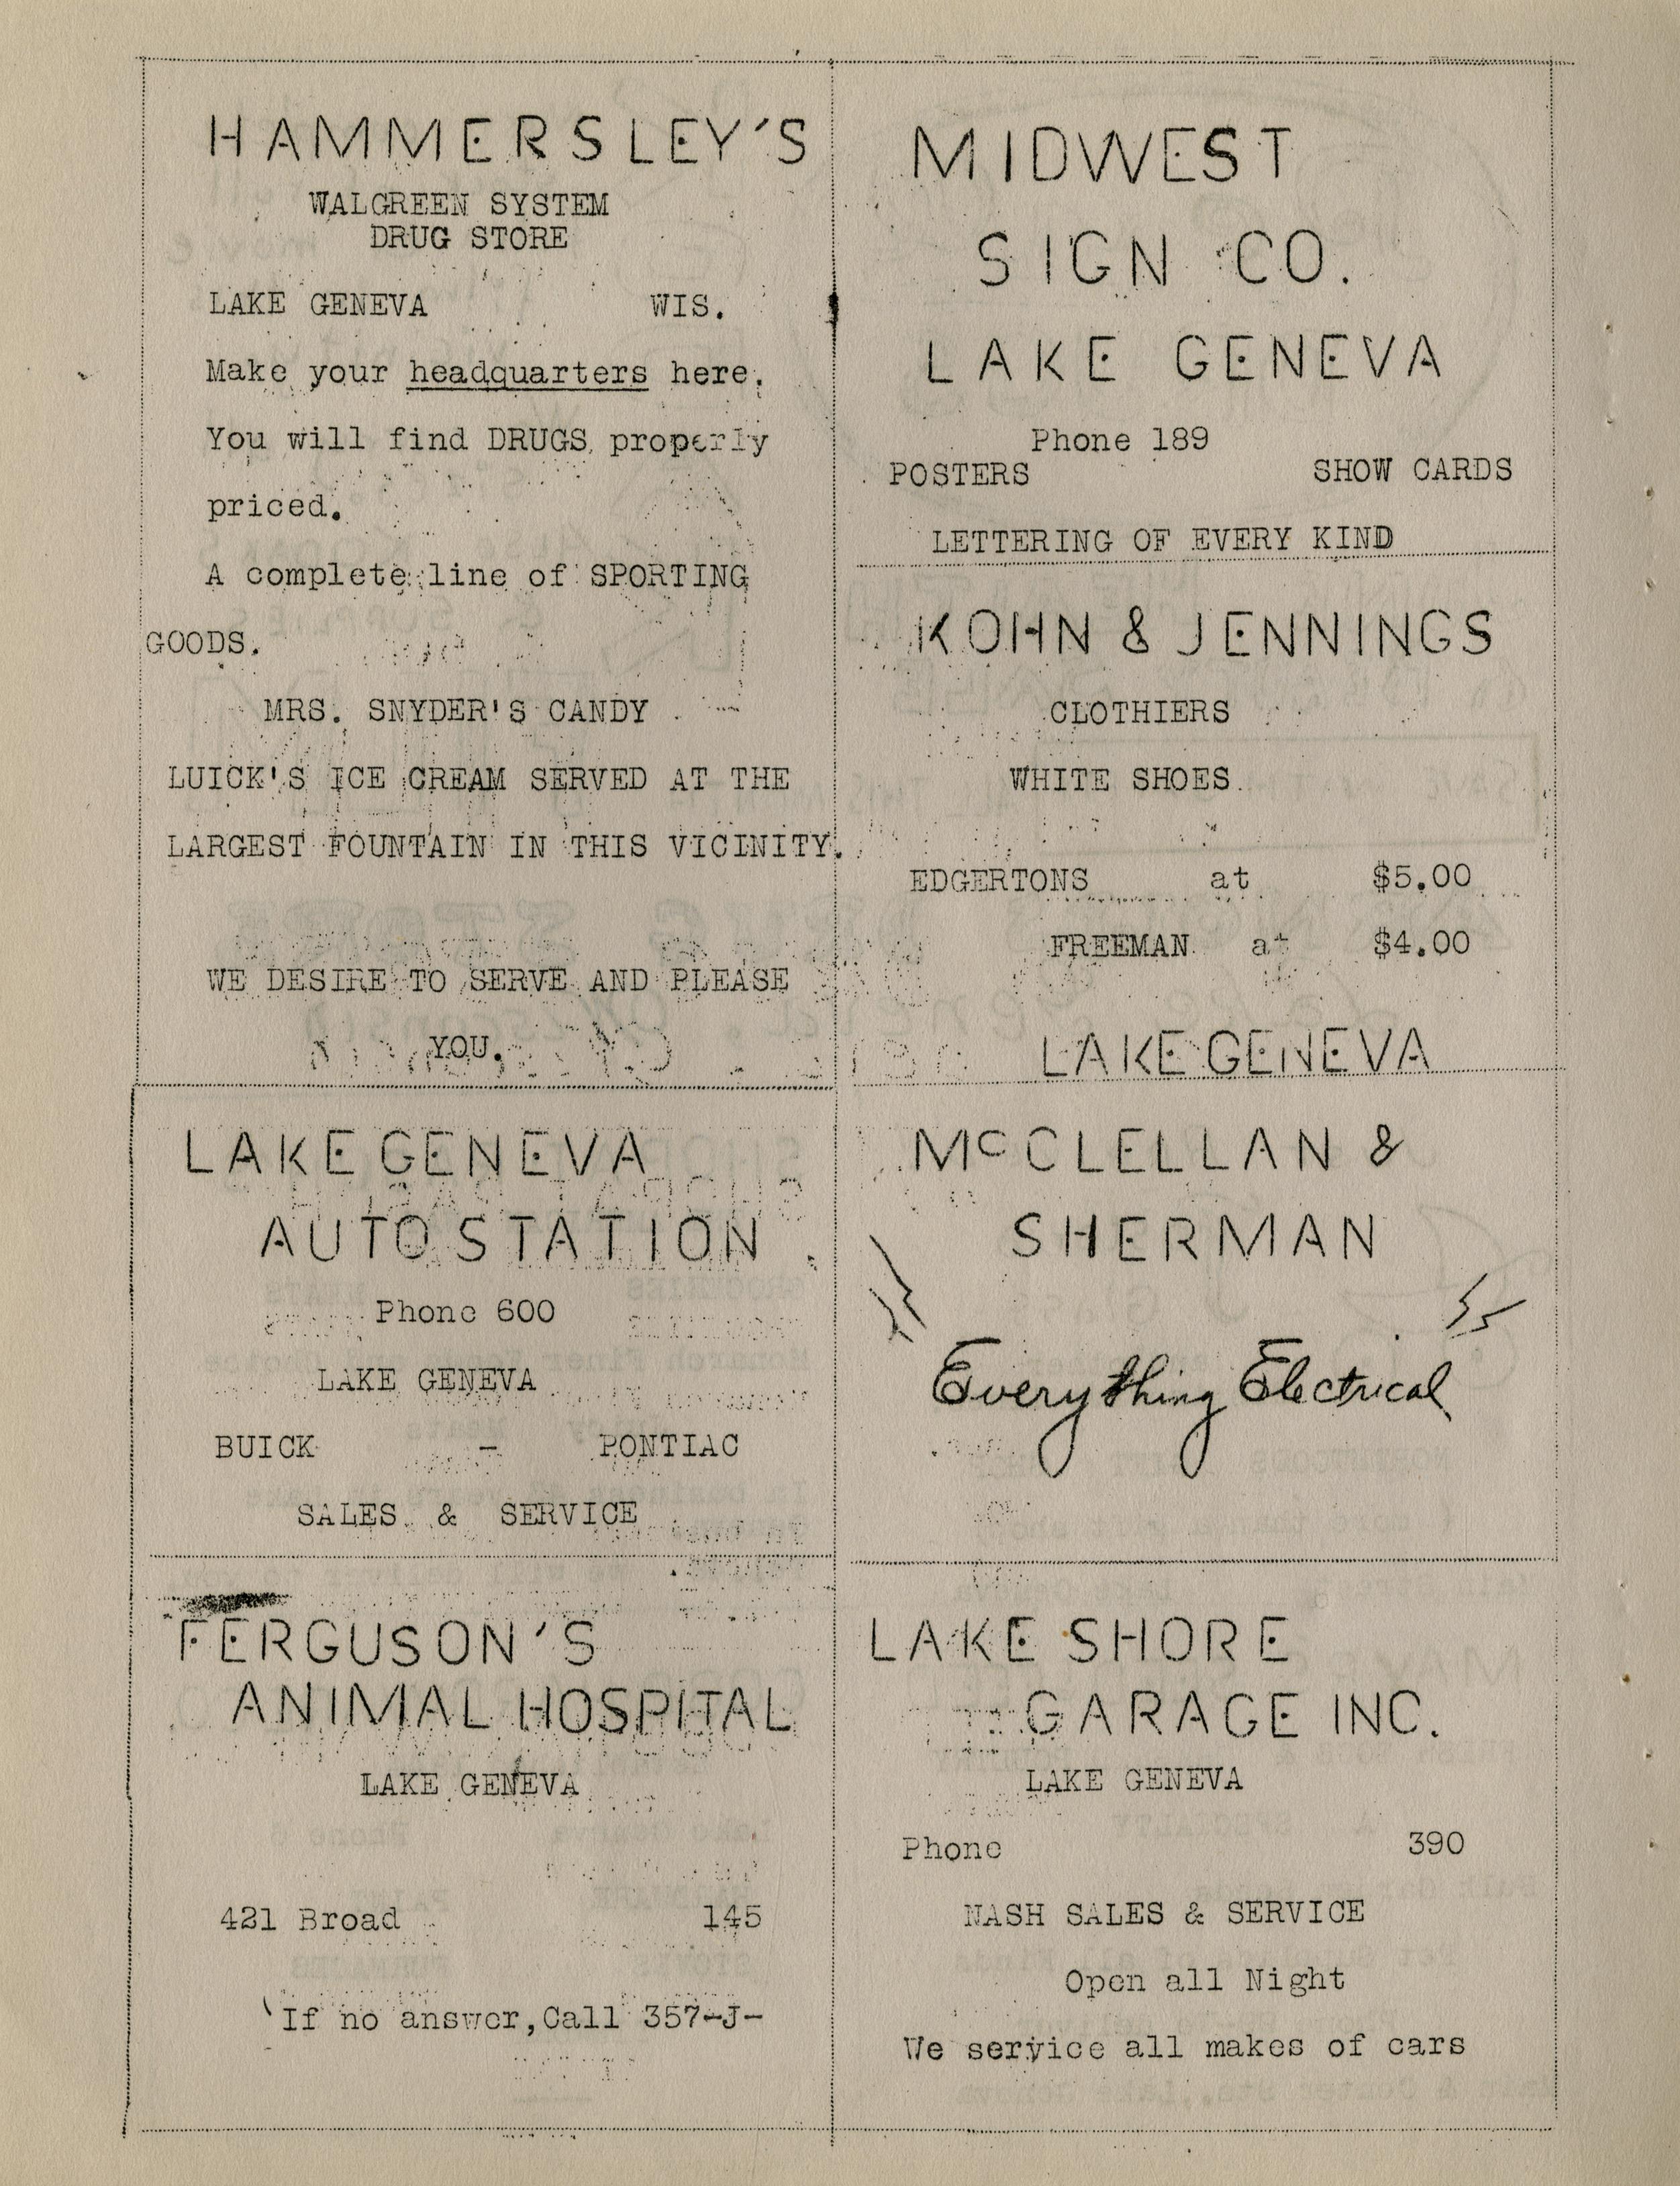 HAMMERSLEY'S
WALGREEN SYSTEM
DRUG STORE
LAKE GENEVA WIS.
Make your headquarters here.
You will find DRUGS properly
priced.
A complete line of SPORTING
GOODS.
MRS. SNYDER'S CANDY
LUICK'S ICE CREAM SERVED AT THE
LARGEST FOUNTAIN IN THIS VICINITY.
WE DESIRE TO SERVE AND PLEASE
YOU.
LAKE GENEVA
AUTO STATION
Phone 600
LAKE GENEVA
BUICK - PONTIAC
SALES & SERVICE
FERGUSON'S
ANIMAL HOSPITAL
LAKE GENEVA
421 Broad 145
If no answer,Call 357-J-
MIDWEST
SIGN CO.
LAKE GENEVA
Phone 189
POSTERS SHOW CARDS
LETTERING OF EVERY KIND
KOHN & JENNINGS
CLOTHIERS
WHITE SHOES
EDGERTONS at $5.00
FREEMAN at $4.00
LAKE GENEVA
McCLELLAN &
SHERMAN
Everything Electrical
LAKE SHORE
GARAGE INC.
LAKE GENEVA
Phone 390
NASH SALES & SERVICE
Open all Night
We service all makes of cars